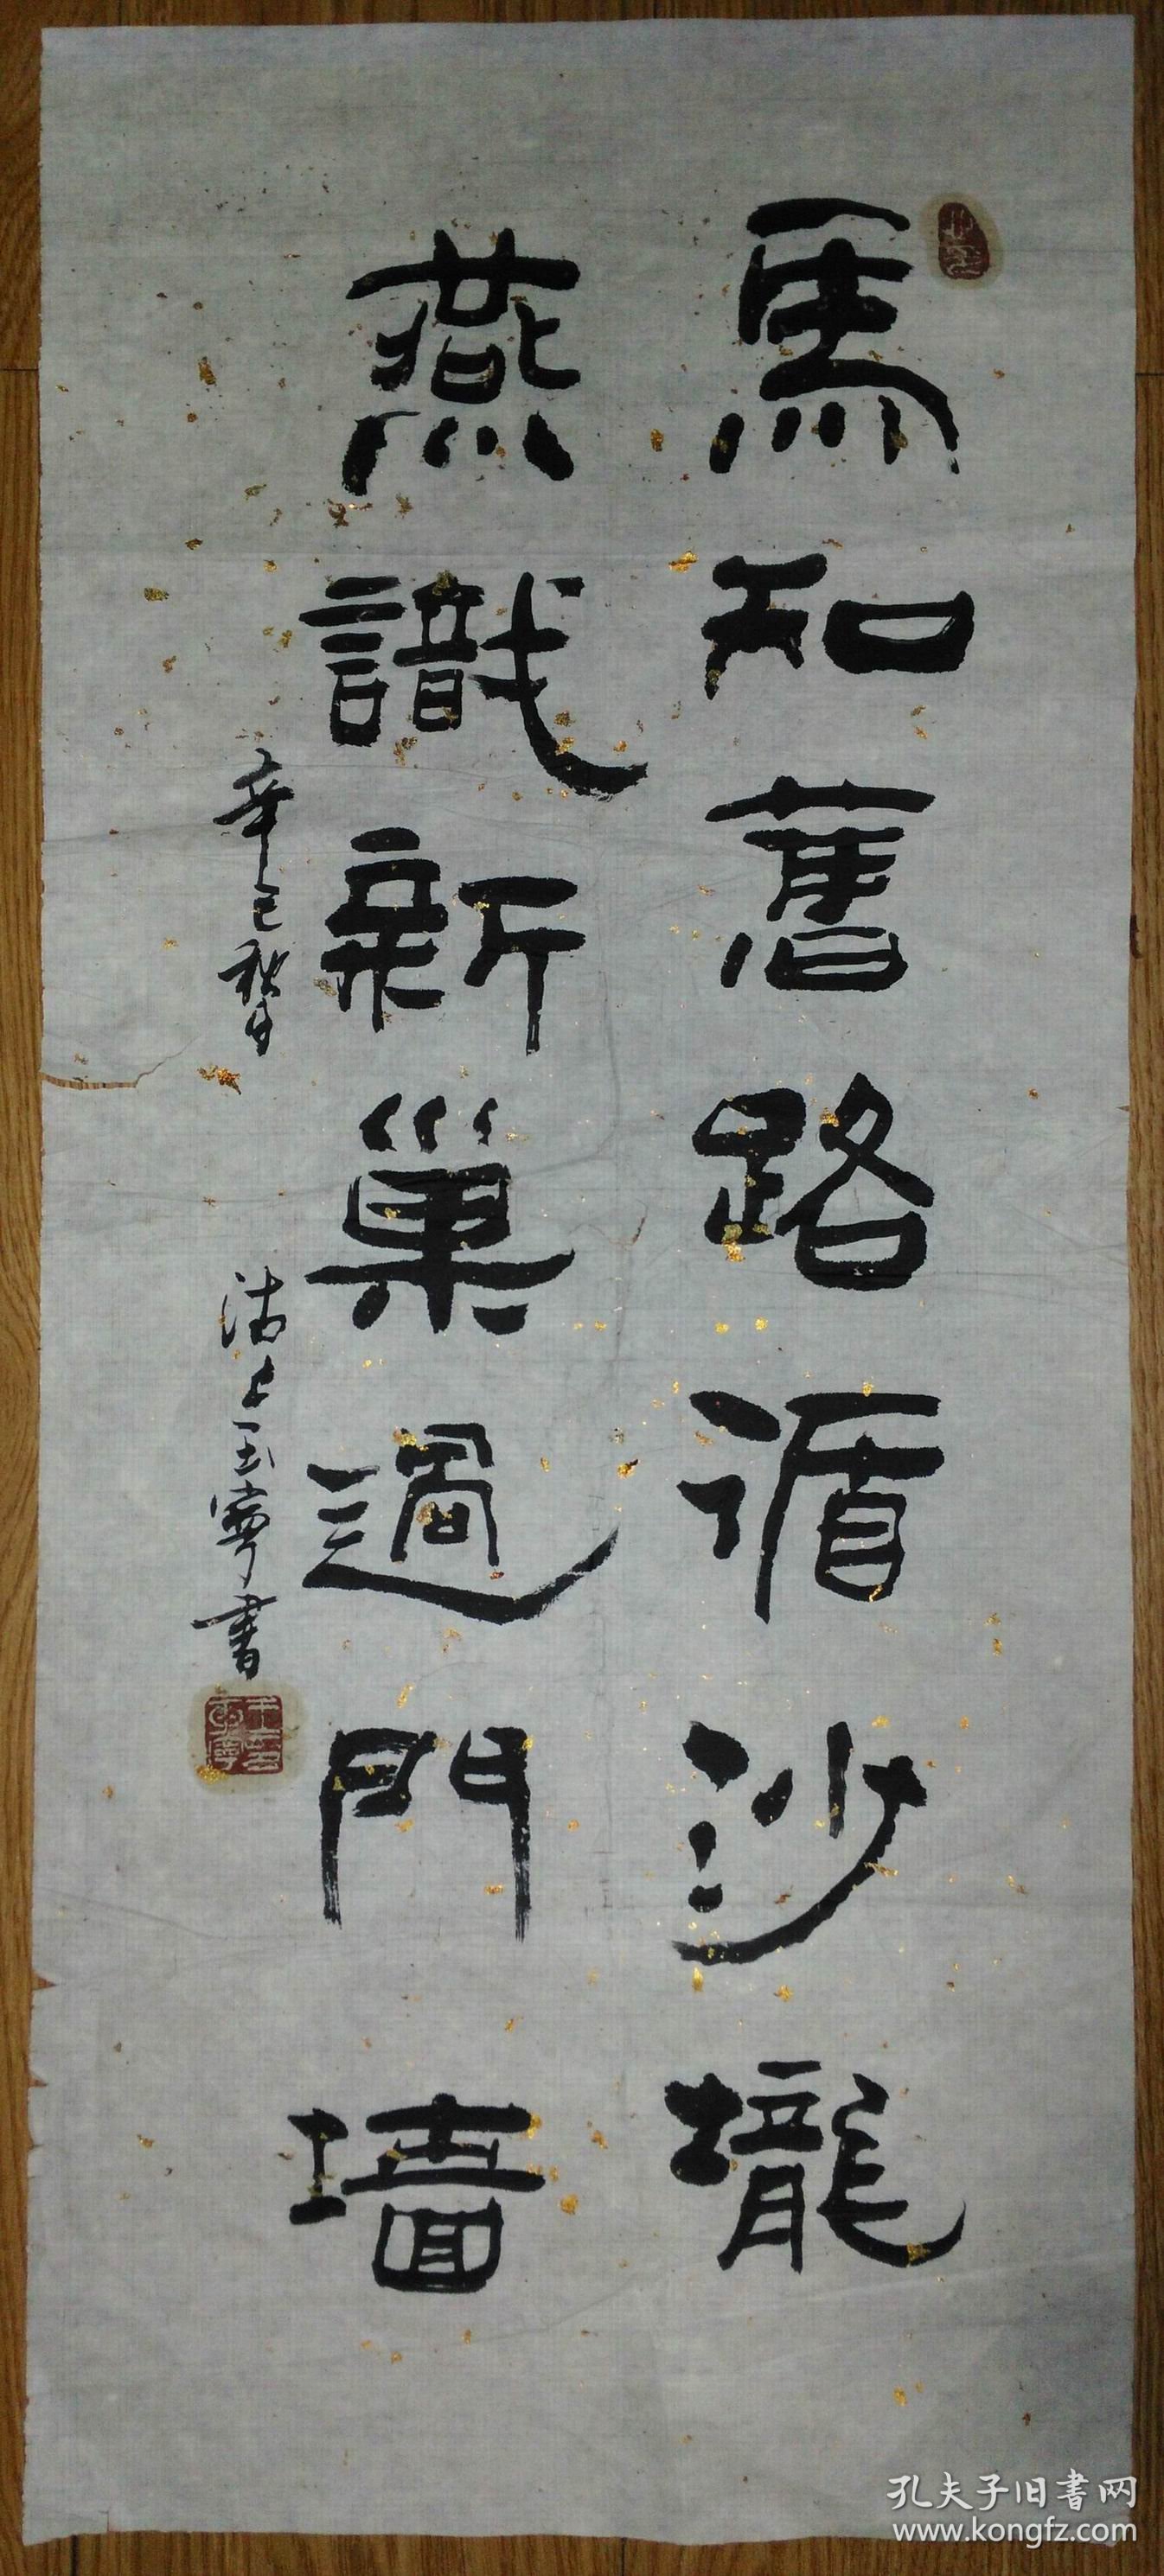 馬知舊路循沙壠
燕識新巢過門墻
辛巳秋月
沽上玉寧書
孔夫子旧书网
www.kongfz.com